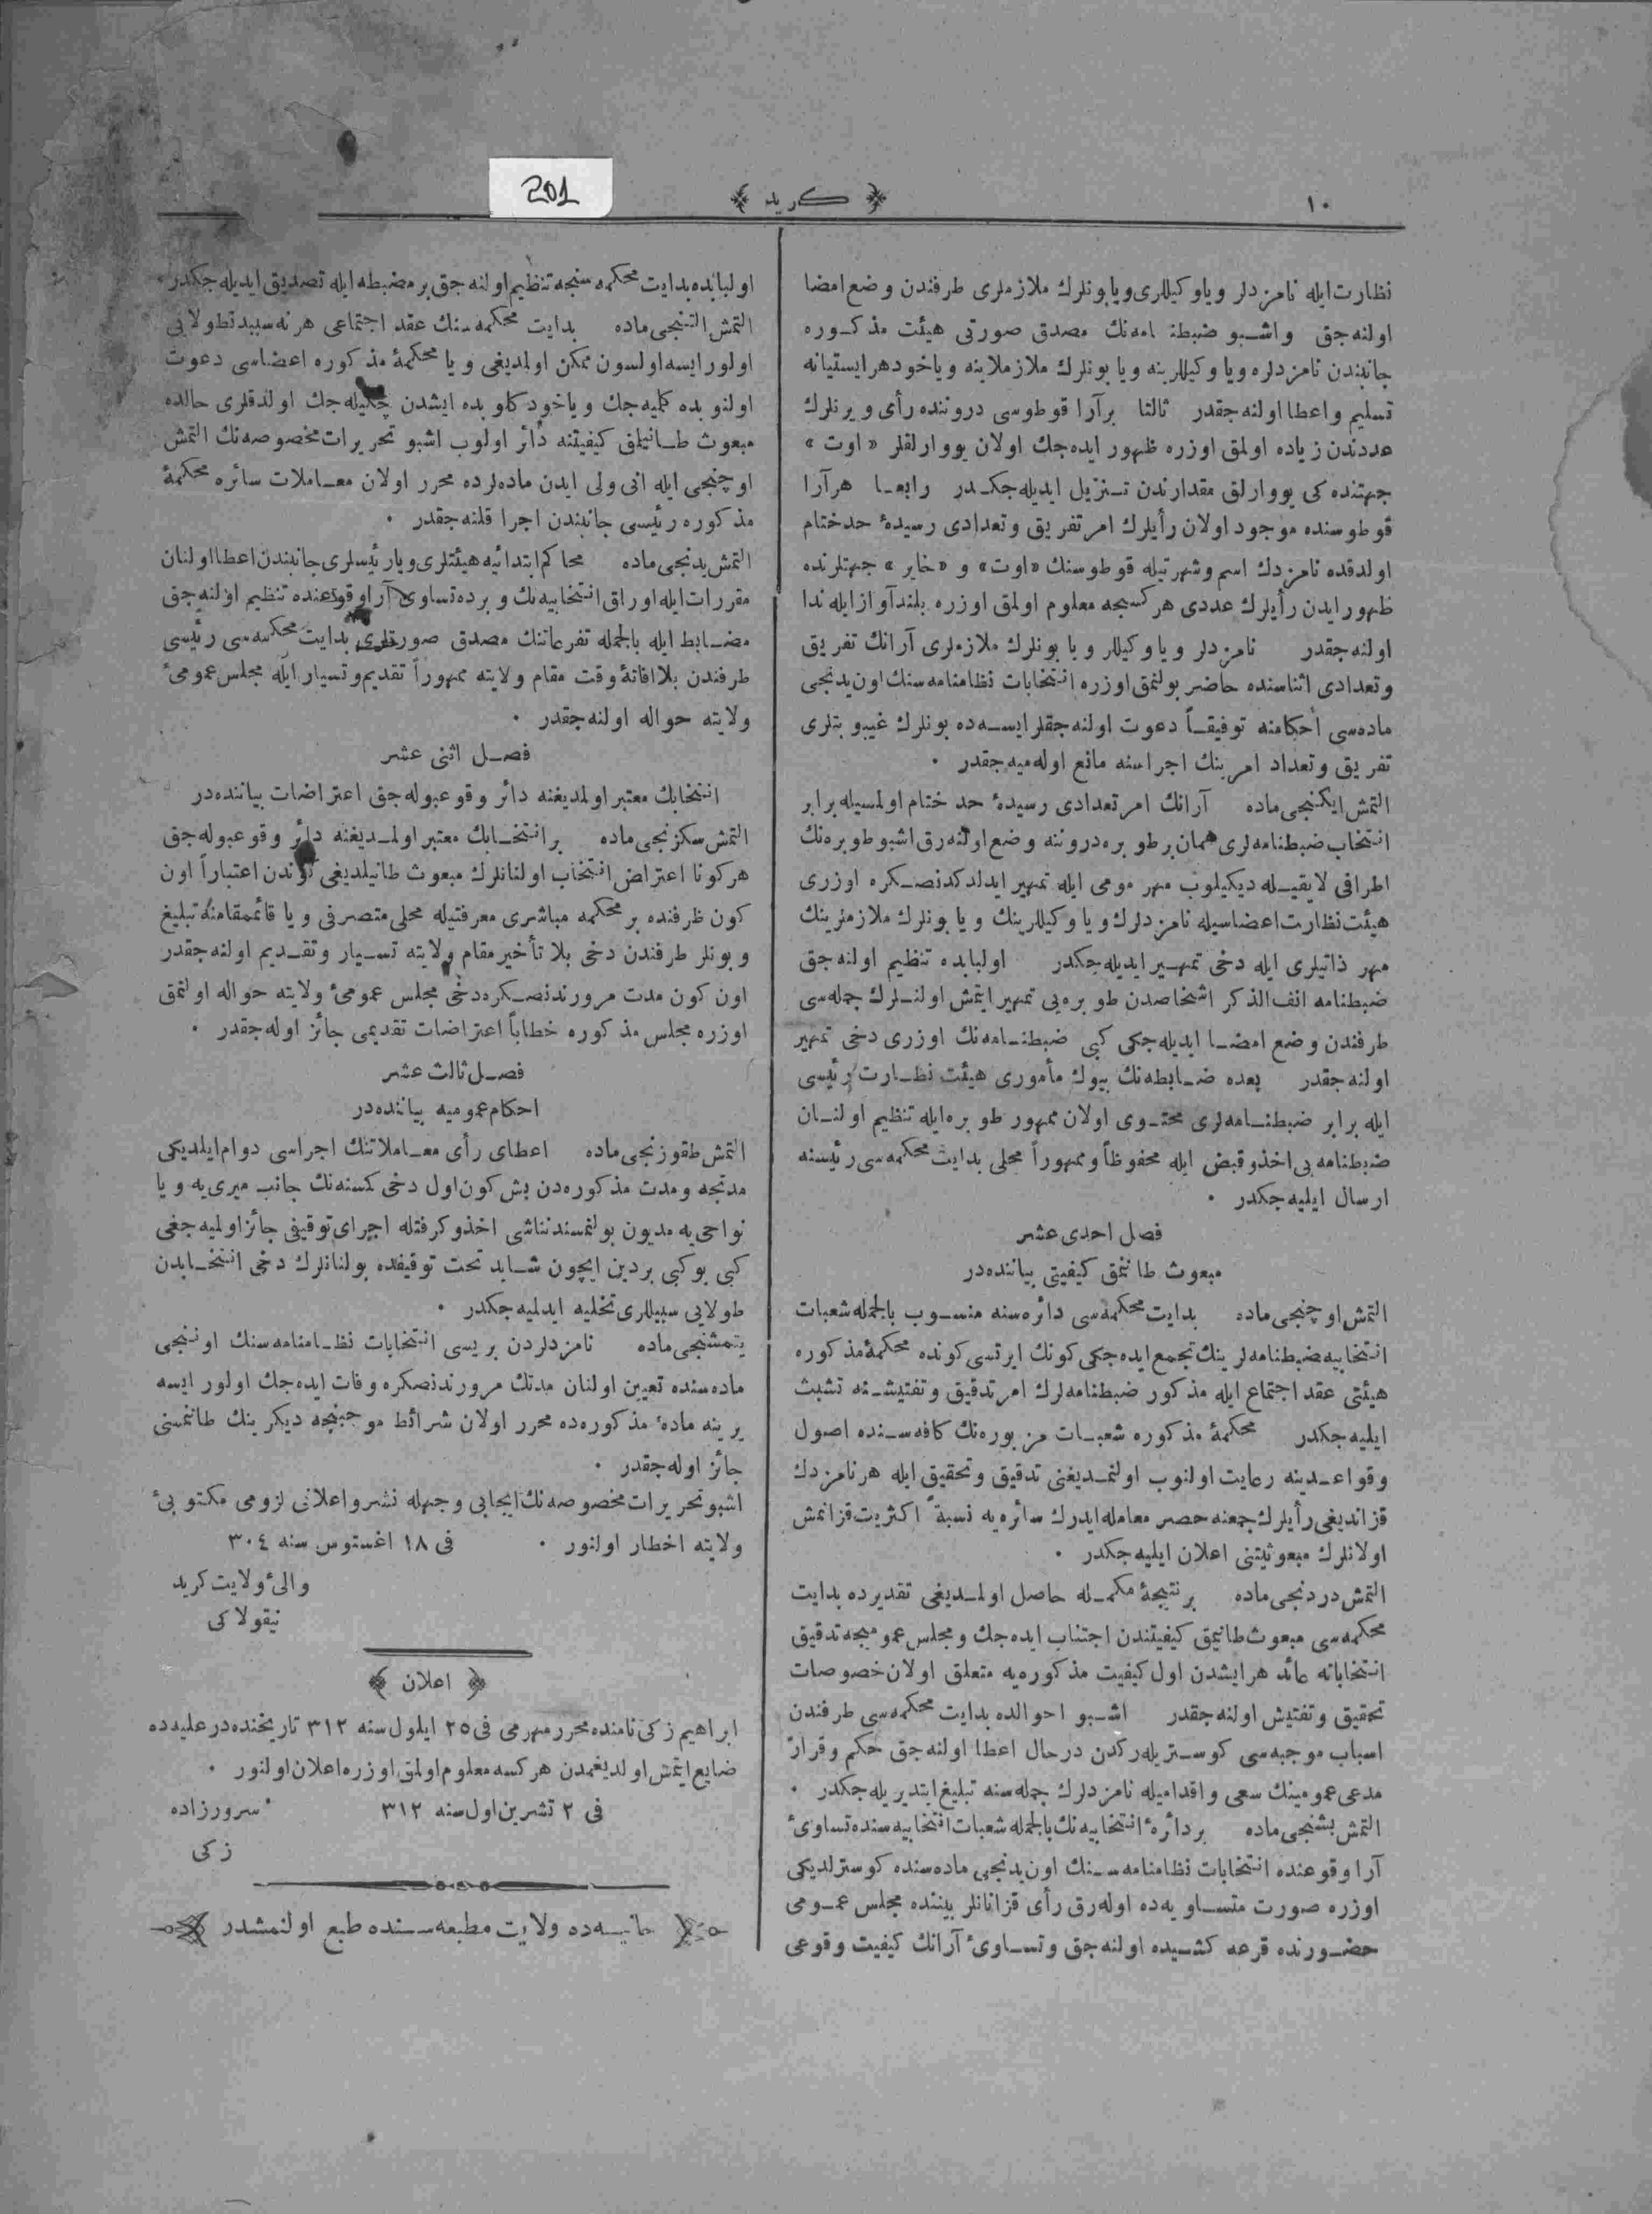 ١٠
كريد
201
نظارت ايله نامزدلر وياوكيللرى ويابونلرك ملازملرى طرفندن وضع امضا
اولنه جق واشبو ضبطنامه نك مصدق صورتى هيئت مذكوره
جانبندن نامزدلره ويا وكيللرينه ويا بونلرك ملازملاينه وياخود هر ايستيانه
تسليم واعطا اولنه جقدر ثالثا برآرا قوطوسى دروننده رأى ويرنلرك
عددندن زياده اولمق اوزره ظهور ايده جك اولان يووارلقلر « اوت »
جهتنده كى يووارلق مقدارندن تنزيل ايديله جكدر رابعا هرآرا
قوطوسنده موجود اولان رأيلرك امر تفريق وتعدادى رسيدۀ حد ختام
اولدقده نامزدك اسم وشهرتيله قوطوسنك «اوت» و «خاير» جهتلرنده
ظهور ايدن رأيلرك عددى هركسجه معلوم اولمق اوزره بلند آواز ايله ندا
اولنه جقدر نامزدلر وياوكيللر ويا بونلرك ملازملرى آرانك تفريق
وتعدادى اثناسنده حاضر بولنمق اوزره انتخابات نظامنامه سنك اون يدنجى
ماده سى احكامنه توفيقاً دعوت اولنه جقلر ايسه ده بونلرك غيبوبتلرى
تفريق وتعداد امرينك اجراسنه مانع اوله ميه جقدر ٠
التمش ايكنجى ماده آرانك امر تعدادى رسيدۀ حد ختام اولمسيله برابر
انتخاب ضبطنامه لرى همان بر طوبره دروننه وضع اولنه رق اشبو طوبره نك
اطرافى لايقيله ديكيلوب مهر مومى ايله تمهير ايدلدكدنصكره اوزرى
هيئت نظارت اعضاسيله نامزدلرك ويا وكيللرينك ويا بونلرك ملازملرينك
مهر ذاتيلرى ايله دخى تمهير ايديله جكدر اولبابده تنظيم اولنه جق
ضبطنامه انف الذكر اشخاصدن طوبره يى تمهير ايتمش اولنلرك جمله سى
طرفندن وضع امضا ايديله جكى كبى ضبطنامه نك اوزرى دخى تمهير
اولنه جقدر بعده ضابطه نك بيوك مأمورى هيئت نظارت رئيسى
ايله برابر ضبطنامه لرى محتوى اولان ممهور طوبره ايله تنظيم اولنان
ضبطنامه يى اخذ وقبض ايله محفوظاً وممهوراً محلى بدايت محكمه سى رئيسنه
ارسال ايليه جكدر ٠
فصل احدى عشر
مبعوث طانمق كيفيتى بياننده در
التمش اوچنجى ماده بدايت محكمه سى دائره سنه منسوب بالجمله شعبات
انتخابيه ضبطنامه لرينك تجمع ايده جكى كونك ايرتسى كونده محكمۀ مذكوره
هيئتى عقد اجتماع ايله مذكور ضبطنامه لرك امر تدقيق وتفتيشنه تشبث
ايليه جكدر محكمۀ مذكوره شعبات مزبوره نك كافه سنده اصول
وقواعدينه رعايت اولنوب اولنمديغنى تدقيق وتحقيق ايله هر نامزدك
قزانديغى رأيلرك جمعنه حصر معامله ايدرك سائره يه نسبةً اكثريت قزانمش
اولانلرك مبعوثيتنى اعلان ايليه جكدر ٠
التمش دردنجى ماده بر نتيجۀ مكمله حاصل اولمديغى تقديرده بدايت
محكمه سى مبعوث طانيمق كيفيتندن اجتناب ايده جك ومجلس عموميجه تدقيق
انتخاباته عائد هر ايشدن اول كيفيت مذكوره يه متعلق اولان خصوصات
تحقيق وتفتيش اولنه جقدر اشبو احوالده بدايت محكمه سى طرفندن
اسباب موجبه سى كوستريله ركدن درحال اعطا اولنه جق حكم وقرار
مدعى عمومينك سعى واقداميله نامزدلرك جمله سنه تبليغ ايتديريله جكدر ٠
التمش بشنجى ماده بر دائرۀ انتخابيه نك بالجمله شعبات انتخابيه سنده تساوئ
آرا وقوعنده انتخابات نظامنامه سنك اون يدنجى ماده سنده كوسترلديكى
اوزره صورت متساويه ده اوله رق رأى قزانانلر بيننده مجلس عمومى
حضورنده قرعه كشيده اولنه جق وتساوئ آرانك كيفيت وقوعى
اولبابده بدايت محكمه سنجه تنظيم اولنه جق بر مضبطه ايله تصديق ايديله جكدر ٠
التمش التنجى ماده بدايت محكمه سنك عقد اجتماعى هر نه سببدن طولايى
اولور ايسه اولسون ممكن اولمديغى ويا محكمۀ مذكوره اعضاسى دعوت
اولنوبده كلميه جك وياخود كلوبده ايشدن چكيله جك اولدقلرى حالده
مبعوث طانيلمق كيفيتنه دائر اولوب اشبو تحريرات مخصوصه نك التمش
اوچنجى ايله انى ولى ايدن ماده لرده محرر اولان معاملات سائره محكمۀ
مذكوره رئيسى جانبندن اجرا قلنه جقدر ٠
التمش يدنجى ماده محاكم ابتدائيه هيئتلرى ويا رئيسلرى جانبندن اعطا اولنان
مقررات ايله اوراق انتخابيه نك وبرده تساوئ آرا وقوعنده تنظيم اولنه جق
مضابط ايله بالجمله تفرعاتنك مصدق صورتلرى بدايت محكمه سى رئيسى
طرفندن بلا افاتۀ وقت مقام ولايته ممهوراً تقديم وتسيار ايله مجلس عمومئ
ولايته حواله اولنه جقدر ٠
فصل اثنى عشر
انتخابك معتبر اولمديغنه دائر وقوعبوله جق اعتراضات بياننده در
التمش سكزنجى ماده بر انتخابك معتبر اولمديغنه دائر وقوعبوله جق
هركونا اعتراض انتخاب اولنانلرك مبعوث طانيلديغى كوندن اعتباراً اون
كون ظرفنده بر محكمه مباشرى معرفتيله محلى متصرفى ويا قائممقامنه تبليغ
وبونلر طرفندن دخى بلا تأخير مقام ولايته تسيار وتقديم اولنه جقدر
اون كون مدت مرورندنصكره دخى مجلس عمومئ ولايته حواله اولنمق
اوزره مجلس مذكوره خطاباً اعتراضات تقديمى جائز اوله جقدر ٠
فصل ثالث عشر
احكام عموميه بياننده در
التمش طقوزنجى ماده اعطاى رأى معاملاتنك اجراسى دوام ايلديكى
مدتجه ومدت مذكوره دن بش كون اول دخى كسنه نك جانب ميرى يه ويا
نواحى يه مديون بولنمسندنناشى اخذ وكرفتله اجراى توقيفى جائز اولميه جغى
كبى بوكبى بردين ايچون شايد تحت توقيفده بولنانلرك دخى انتخابدن
طولايى سبيللرى تخليه ايدلميه جكدر ٠
يتمشنجى ماده نامزدلردن بريسى انتخابات نظامنامه سنك اوننجى
ماده سنده تعيين اولنان مدتك مرورندنصكره وفات ايده جك اولور ايسه
يرينه مادۀ مذكوره ده محرر اولان شرائط موجبنجه ديكرينك طاننمسنى
جائز اوله جقدر ٠
اشبو تحريرات مخصوصه نك ايجابى وجهله نشر واعلانى لزومى مكتوبئ
ولايته اخطار اولنور ٠ فى ١٨ اغستوس سنه ٣٠٤
والئ ولايت كريد
نيقولاكى
اعلان
ابراهيم زكى نامنده محرر مهرمى فى ٢٥ ايلول سنه ٣١٢ تاريخنده در عليه ده
ضايع ايتمش اولديغمدن هركسه معلوم اولمق اوزره اعلان اولنور ٠
فى ٢ تشرين اول سنه ٣١٢ سرورزاده
زكى
حانيه ده ولايت مطبعه سنده طبع اولنمشدر